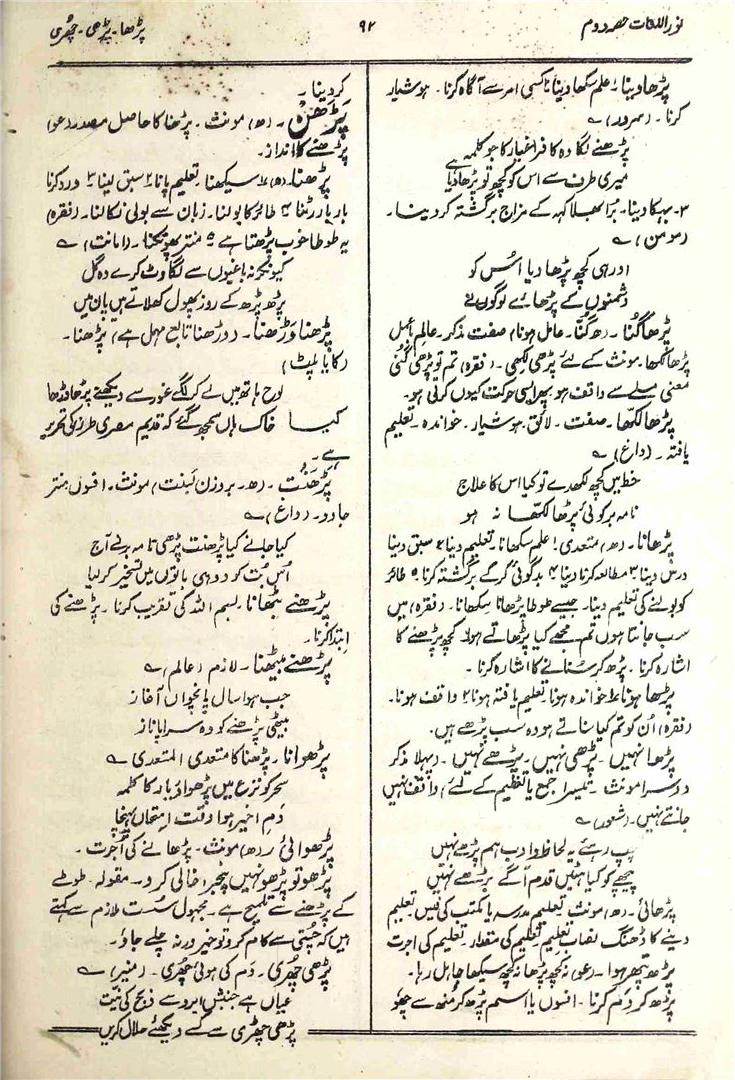 نور اللغات حصہ دوم
۹۲
پڑھا۔ پڑھی۔ چھری
پڑھا دینا ۱ علم سکھا دینا ۲ کسی امر سے آگاہ کرنا۔ ہوشیار
کرنا۔ (سرور) ؎
پڑھنے لگا وہ کافر اغیار کا جو کلمہ ہے
میری طرف سے اس کو کچھ تو پڑھا دیا
۳۔ بہکا دینا۔ برا بھلا کہہ کے مزاج برگشتہ کر دینا۔
(مومن) ؎
اور ہی کچھ پڑھا دیا اُس کو
دشمنوں کے پڑھائے لوگوں نے
پڑھا گُنا۔ (ھ۔ گُنّا۔ عامل ہونا) صفت مذکر۔ عالم باعمل
پڑھا لکھا۔ مونث کے لئے پڑھی لکھی۔ (نقرہ) تم تو پڑھی گُنی
معنی مسلے سے واقف ہو پھر ایسی حرکت کیوں کرتی ہو۔
پڑھا لکھا۔ صفت۔ لائق۔ ہوشیار۔ خواندہ۔ تعلیم
یافتہ۔ (داغ) ؎
خط میں کچھ لکھدے تو کیا اس کا علاج
نامہ بر کوئی پڑھا لکھا نہ ہو
پڑھانا۔ (ھ) متعدی ۱ علم سکھانا۔ تعلیم دینا ۲ سبق دینا
درس دینا ۳ مطالعہ کرنا دینا ۴ بدگوئی کر کے برگشتہ کرنا ۵ طائر
کو بولنے کی تعلیم دینا۔ جیسے طوطا پڑھانا سکھانا۔ (فقرہ) میں
سب جانتا ہوں تم مجھے کیا پڑھاتے ہو ۶ کچھ پڑھنے کا
اشارہ کرنا۔ پڑھ کر سنانے کا اشارہ کرنا۔
پڑھا ہونا ۱ خواندہ ہونا۔ تعلیم یافتہ ہونا ۲ واقف ہونا۔
(فقرہ) اُن کو تم کیا سناتے ہو وہ سب پڑھے ہیں۔
پڑھا نہیں۔ پڑھی نہیں۔ پڑھے نہیں۔ (پہلا مذکر
دوسرا مونث۔ تیسرا جمع یا تعظیم کے لئے) واقف نہیں
جانتے نہیں۔ (شعور) ؎
چپ رہئے یہ لحاظ و ادب ہم پڑھے نہیں
پیچھے کو کیا ہٹیں قدم آگے بڑھے نہیں
پڑھائی۔ (ھ) مونث تعلیم مدرسہ یا مکتب کی فیس تعلیم
دینے کا ڈھنگ نصاب تعلیم تعلیم کی مقدار۔ تعلیم کی اجرت
پڑھ پتھر ہوا۔ (عو) نہ کچھ پڑھا نہ کچھ سیکھا جاہل رہا۔
پڑھ کر دم کرنا۔ افسوں یا اسم پڑھ کر منھ سے چھو
کر دینا۔
پڑھن۔ (ھ) مونث۔ پڑھنا کا حاصل مصدر (عو)
پڑھنے کا انداز۔
پڑھنا۔ (ھ) ۱ سیکھنا۔ تعلیم پانا ۲ سبق لینا ۳ ورد کرنا
بار بار رٹنا ۴ طائر کا بولنا۔ زبان سے بولی نکالنا۔ (نقرہ)
یہ طوطا خوب پڑھتا ہے ۵ منتر پھونکنا۔ (امانت) ؎
کیونکر نہ باغیوں سے لگاوٹ کرے وہ گل
پڑھ پڑھ کے روز پھول کھلاتے ہیں پان میں
پڑھنا وَڑھنا۔ (وڑھنا تابع مہمل ہے) پڑھنا۔
(کایا پلٹ)
لوح ہاتھ میں لے کر لگے غور سے دیکھنے پڑھا وڑھا
کیا خاک ہاں سمجھ گئے کہ قدیم مصری طرز کی تحریر
ہے۔
پڑھنت۔ (ھ۔ بروزن بسنت) مونث۔ افسوں منتر
جادو۔ (داغ) ؎
کیا جانے کیا پڑھنت پڑھی نامہ بر نے آج
اُس بُت کو دو ہی باتوں میں تسخیر کر لیا
پڑھنے بٹھانا۔ بسم اللہ کی تقریب کرنا۔ پڑھنے کی
ابتدا کرنا۔
پڑھنے بیٹھنا۔ لازم (عالم) ؎
جب ہوا سال پانچواں آغاز
بیٹھی پڑھنے کو وہ سراپا ناز
پڑھوانا۔ پڑھنا کا متعدی المتعدی ؎
سحر کو نزع میں پڑھواؤ یار کا کلمہ
دم اخیر ہوا وقت امتحاں پہنچا
پڑھوائی۔ (ھ) مونث۔ پڑھانے کی اُجرت۔
پڑھو تو پڑھو نہیں پنجرا خالی کرو۔ مقولہ۔ طوطے
کے پڑھنے سے تلمیح ہے۔ مجہول سست ملازم سے کہتے
ہیں کہ چستی سے کام کرو تو خیر ورنہ چلے جاؤ۔
پڑھی چھری۔ دم کی ہوئی چھری۔ (منیر) ؎
عیاں ہے جنبش ابرو سے ذبح کی نیت
پڑھی چھڑی سے گے دیکھئے حلال کریں